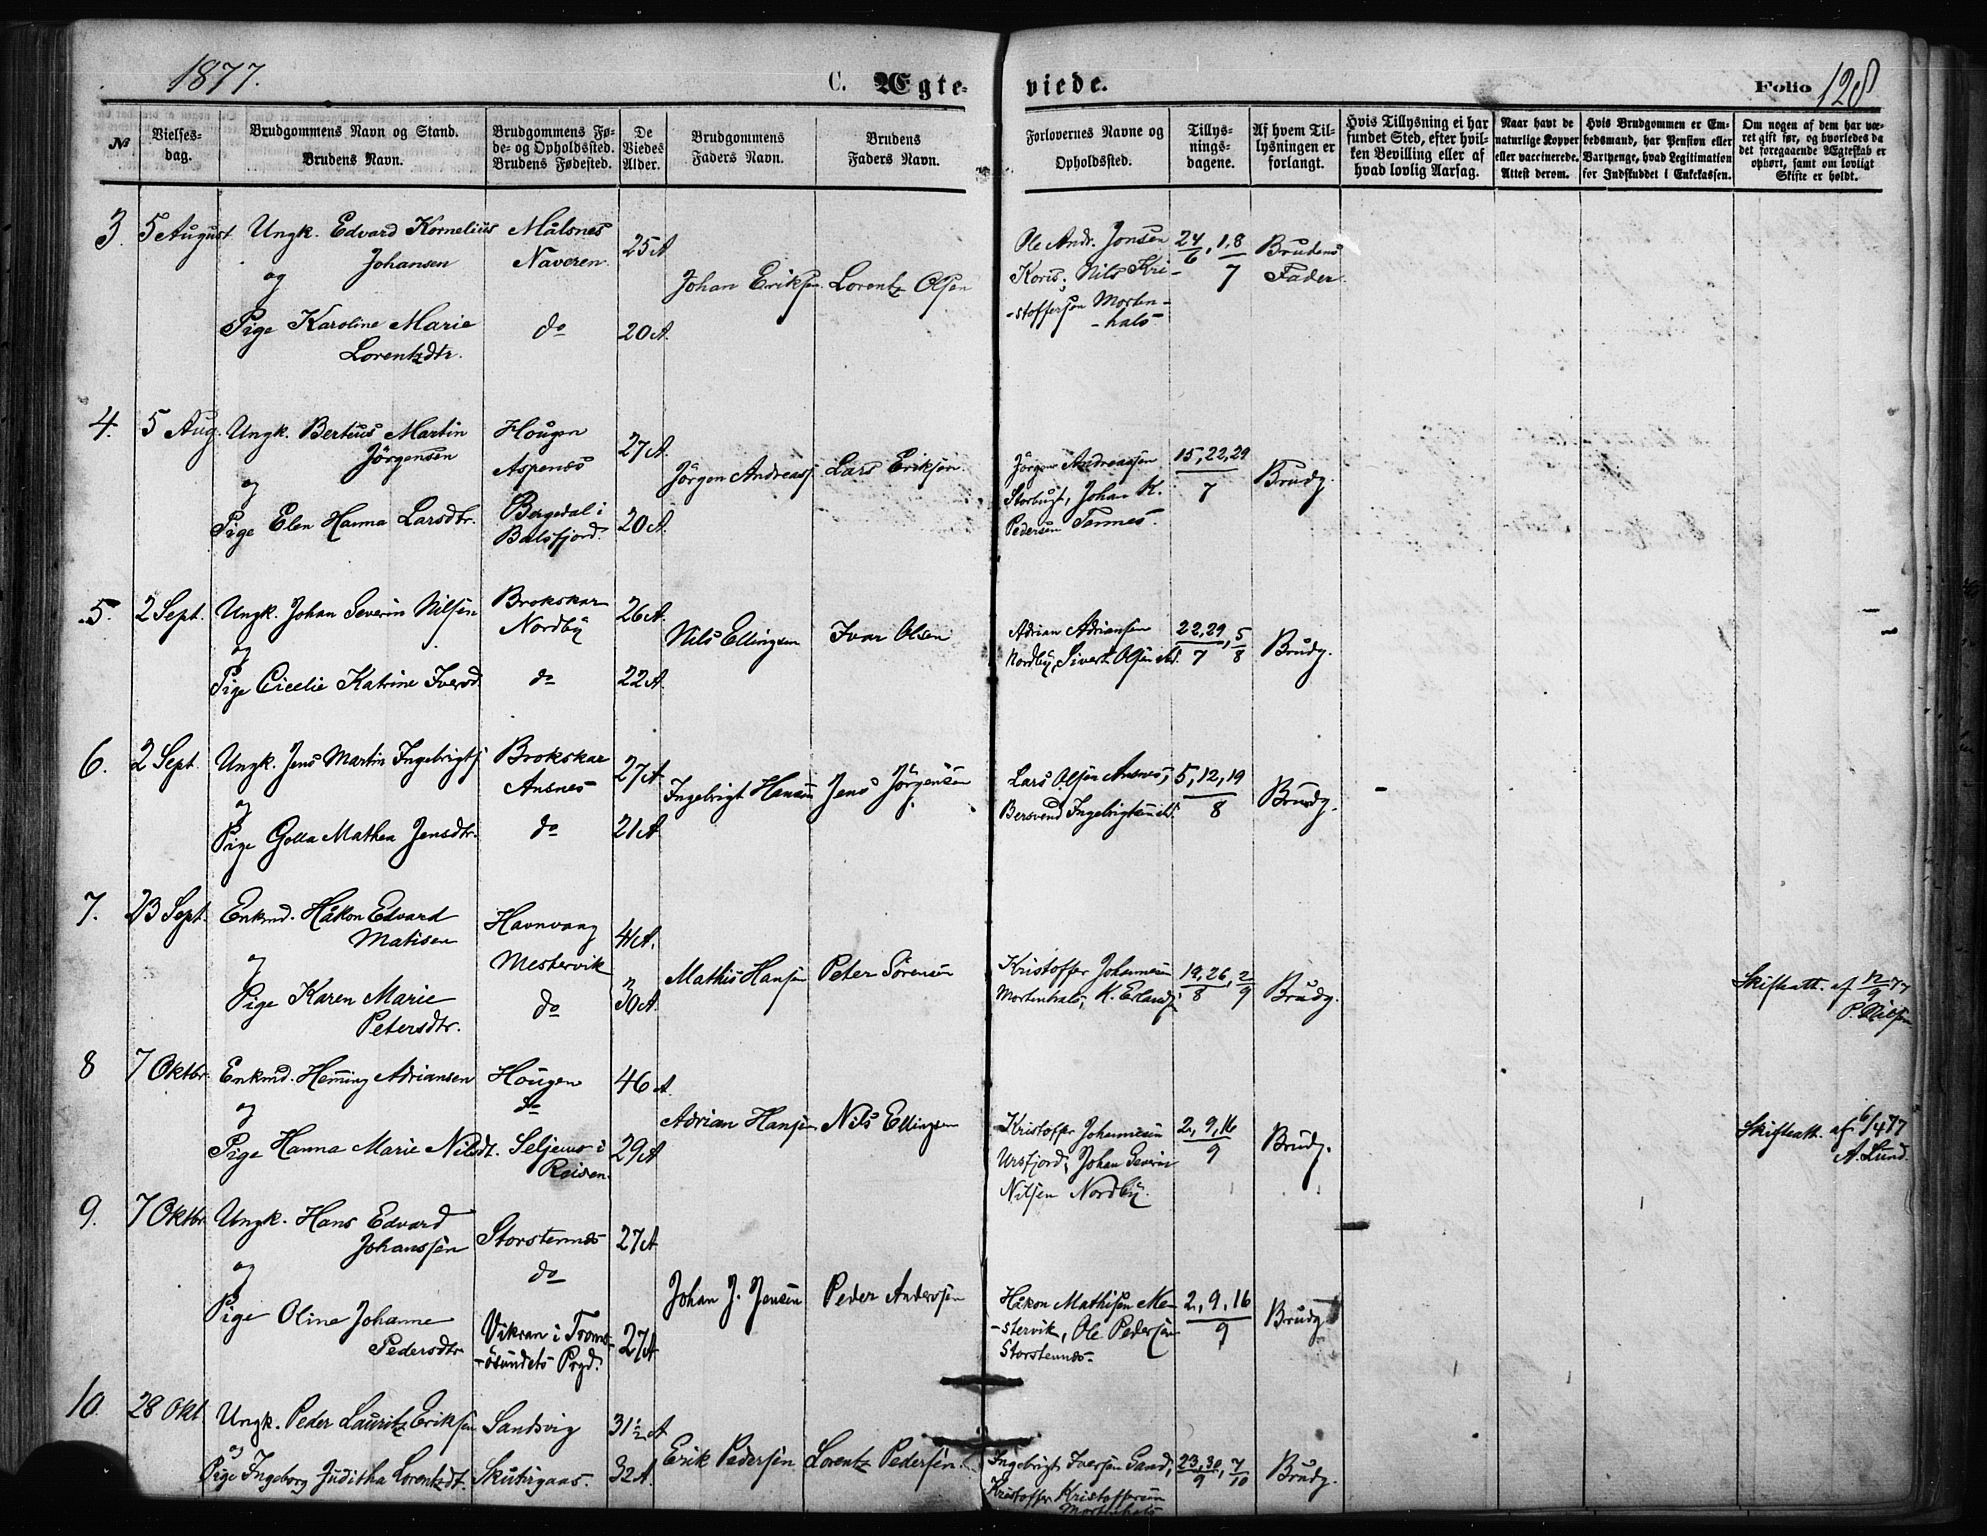 1877.
C. Ægte-
viede.
Folio 128
№
Vielses-
dag.
Brudgommens Navn og Stand.
Brudens Navn.
Brudgommens Fø-
de- og Opholdssted.
Brudens Fødested.
De
Viedes
Alder.
Brudgommens
Faders Navn.
Brudens
Faders Navn.
Forlovernes Navne og
Opholdssted.
Tillys-
nings-
dagene.
Af hvem Til-
lysningen er
forlangt.
Hvis Tillysning ei har
fundet Sted, efter hvil-
ken Bevilling eller af
hvad lovlig Aarsag.
Naar havt de
naturlige Kopper
eller vaccinerede.
Attest derom.
Hvis Brudgommen er Em-
bedsmand, har Pension eller
Vartpenge, hvad Legitimation
for Indskuddet i Enkekassen.
Om nogen af dem har væ-
ret gift før, og hvorledes da
det foregaaende Ægteskab er
ophørt, samt om lovligt
Skifte er holdt.
3.
5 August
Ungk. Edvard Kornelius
Johansen
og
Pige Karoline Marie
Lorentzdtr.
Målsnes
Naveren
do
25 A
20 A.
Johan Eriksen
Lorentz Olsen
Ole Andr. Jonsen
Koris; Nils Kri-
-stoffersen Morten-
-hals
24/6, 1, 8/7
Brudens
Fader.
4.
5 Aug.
Ungk. Berteus Martin
Jörgensen
og
Pige Elen Hanna Larsdtr.
Hougen
Aspenes
Bergedal i
Balsfjord.
27 A.
20 A.
Jörgen Andreass
Lars Eriksen
Jörgen Andreassen
Storbugt, Johan K.
Pedersen Tannes.
15, 22, 29
7
Brudg.
5.
2 Sept.
Ungk. Johan Severin Nilsen
og
Pige Cicelie Katrine Iversd.
Brokskar
Nordby
do
26 A.
22 A.
Nils Ellingsen
Ivar Olsen
Adrian Adriansen
Nordby, Sivert Olsen ibd.
22, 29/7, 5/8
Brudg.
6.
2 Sept.
Ungk. Jens Martin Ingebrigts.
og
Pige Golla Mathea Jensdtr.
Brokskar
Ansnes
do
27 A.
21 A.
Ingebrigt Hansen
Jens Jörgensen
Lars Olsen Ansnes,
Bersvend Ingebrigtsen ibd.
5, 12, 19
8
Brudg.
7.
23 Sept.
Enkmd. Håkon Edvard
Matisen
og
Pige Karen Marie
Petersdtr.
Havnvaag
Mestervik
do
41 A.
30 A.
Mathis Hansen
Peter Sörensen
Kristoffer Johannesen
Mortenhals, K. Erlands.
19, 26/8, 2/9
Brudg.
Skifteatt. af 12/9 77
P. Nilsen
8
7 Oktbr.
Enkmd. Heming Adriansen
og
Pige Hanna Marie Nilsdt.
Hougen
do
Seljenes i
Reisen
46 A.
29 A
Adrian Hansen
Nils Ellingsen
Kristoffer Johannesen
Ursfjord; Johan Severin
Nilsen Nordby.
2, 9, 16
9
Brudg.
Skifteatt. af 6/4 77
A. Lund.
9.
7 Oktbr
Ungk. Hans Edvard
Johanssen
og
Pige Oline Johanne
Pedersdtr
Storstennes
do
Vikran i Troms-
-ösundets Prgd.
27 A
27 A
Johan J. Jensen
Peder Andersen
Håkon Mathisen Me-
-stervik, Ole Pedersen
Storstennes.
2, 9, 16
9
Brudg.
10.
28 Okt
Ungk. Peder Lauritz Eriksen
og
Pige Ingeborg Juditha Lorentzdt.
Sandvig
31½ A
32 A.
Erik Pedersen
Lorentz Pedersen
Ingebrigt Iversen Sand,
Kristoffer Kristoffersen
Mortenhals
23, 30/9, 7/10
Brudg.